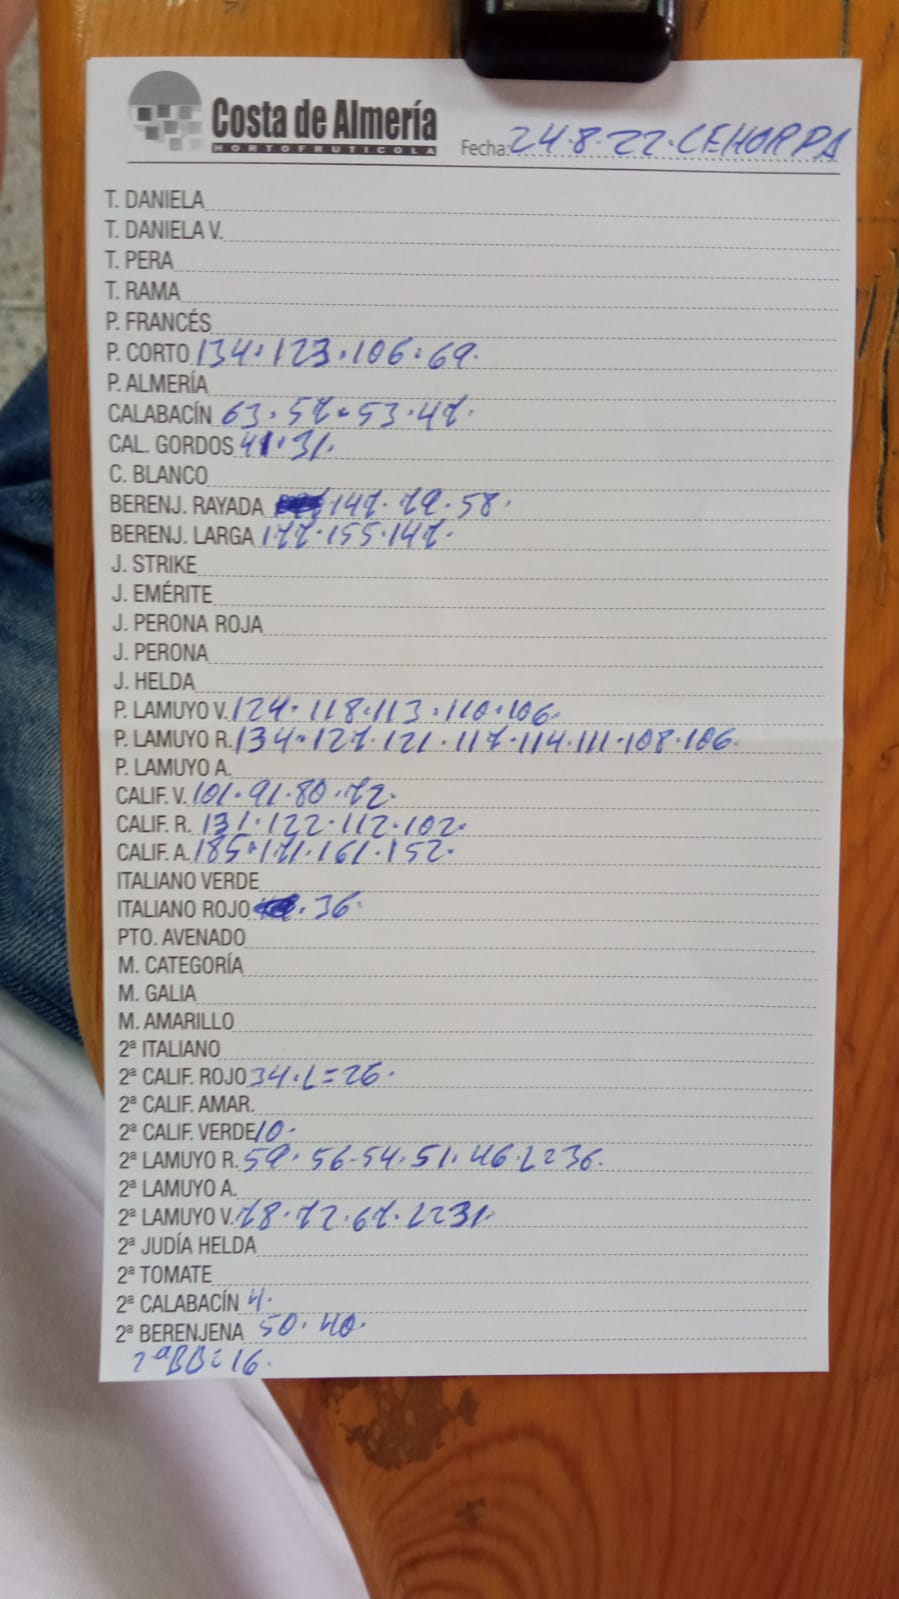 Costa de Almería
HORTOFRUTICOLA
Fecha: 24.8.22.CEHORPA
T. DANIELA
T. DANIELA V.
T. PERA
T. RAMA
P. FRANCÉS
P. CORTO 134.123.106.69.
P. ALMERÍA
CALABACÍN 63.57.53.47.
CAL. GORDOS 41.31.
C. BLANCO
BERENJ. RAYADA 147.79.58.
BERENJ. LARGA 177.155.147.
J. STRIKE
J. EMÉRITE
J. PERONA ROJA
J. PERONA
J. HELDA
P. LAMUYO V. 124.118.113.110.106.
P. LAMUYO R. 134.127.121.117.114.111.108.106.
P. LAMUYO A.
CALIF. V. 101.91.80.72.
CALIF. R. 131.122.112.102.
CALIF. A. 185.171.161.152.
ITALIANO VERDE
ITALIANO ROJO .36.
PTO. AVENADO
M. CATEGORÍA
M. GALIA
M. AMARILLO
2ª ITALIANO
2ª CALIF. ROJO 34.L=26.
2ª CALIF. AMAR.
2ª CALIF. VERDE 10.
2ª LAMUYO R. 59.56-54.51.46.L=36.
2ª LAMUYO A.
2ª LAMUYO V. 78.72.67.L=31.
2ª JUDÍA HELDA
2ª TOMATE
2ª CALABACÍN 4.
2ª BERENJENA 50.40.
2ªBB=16.